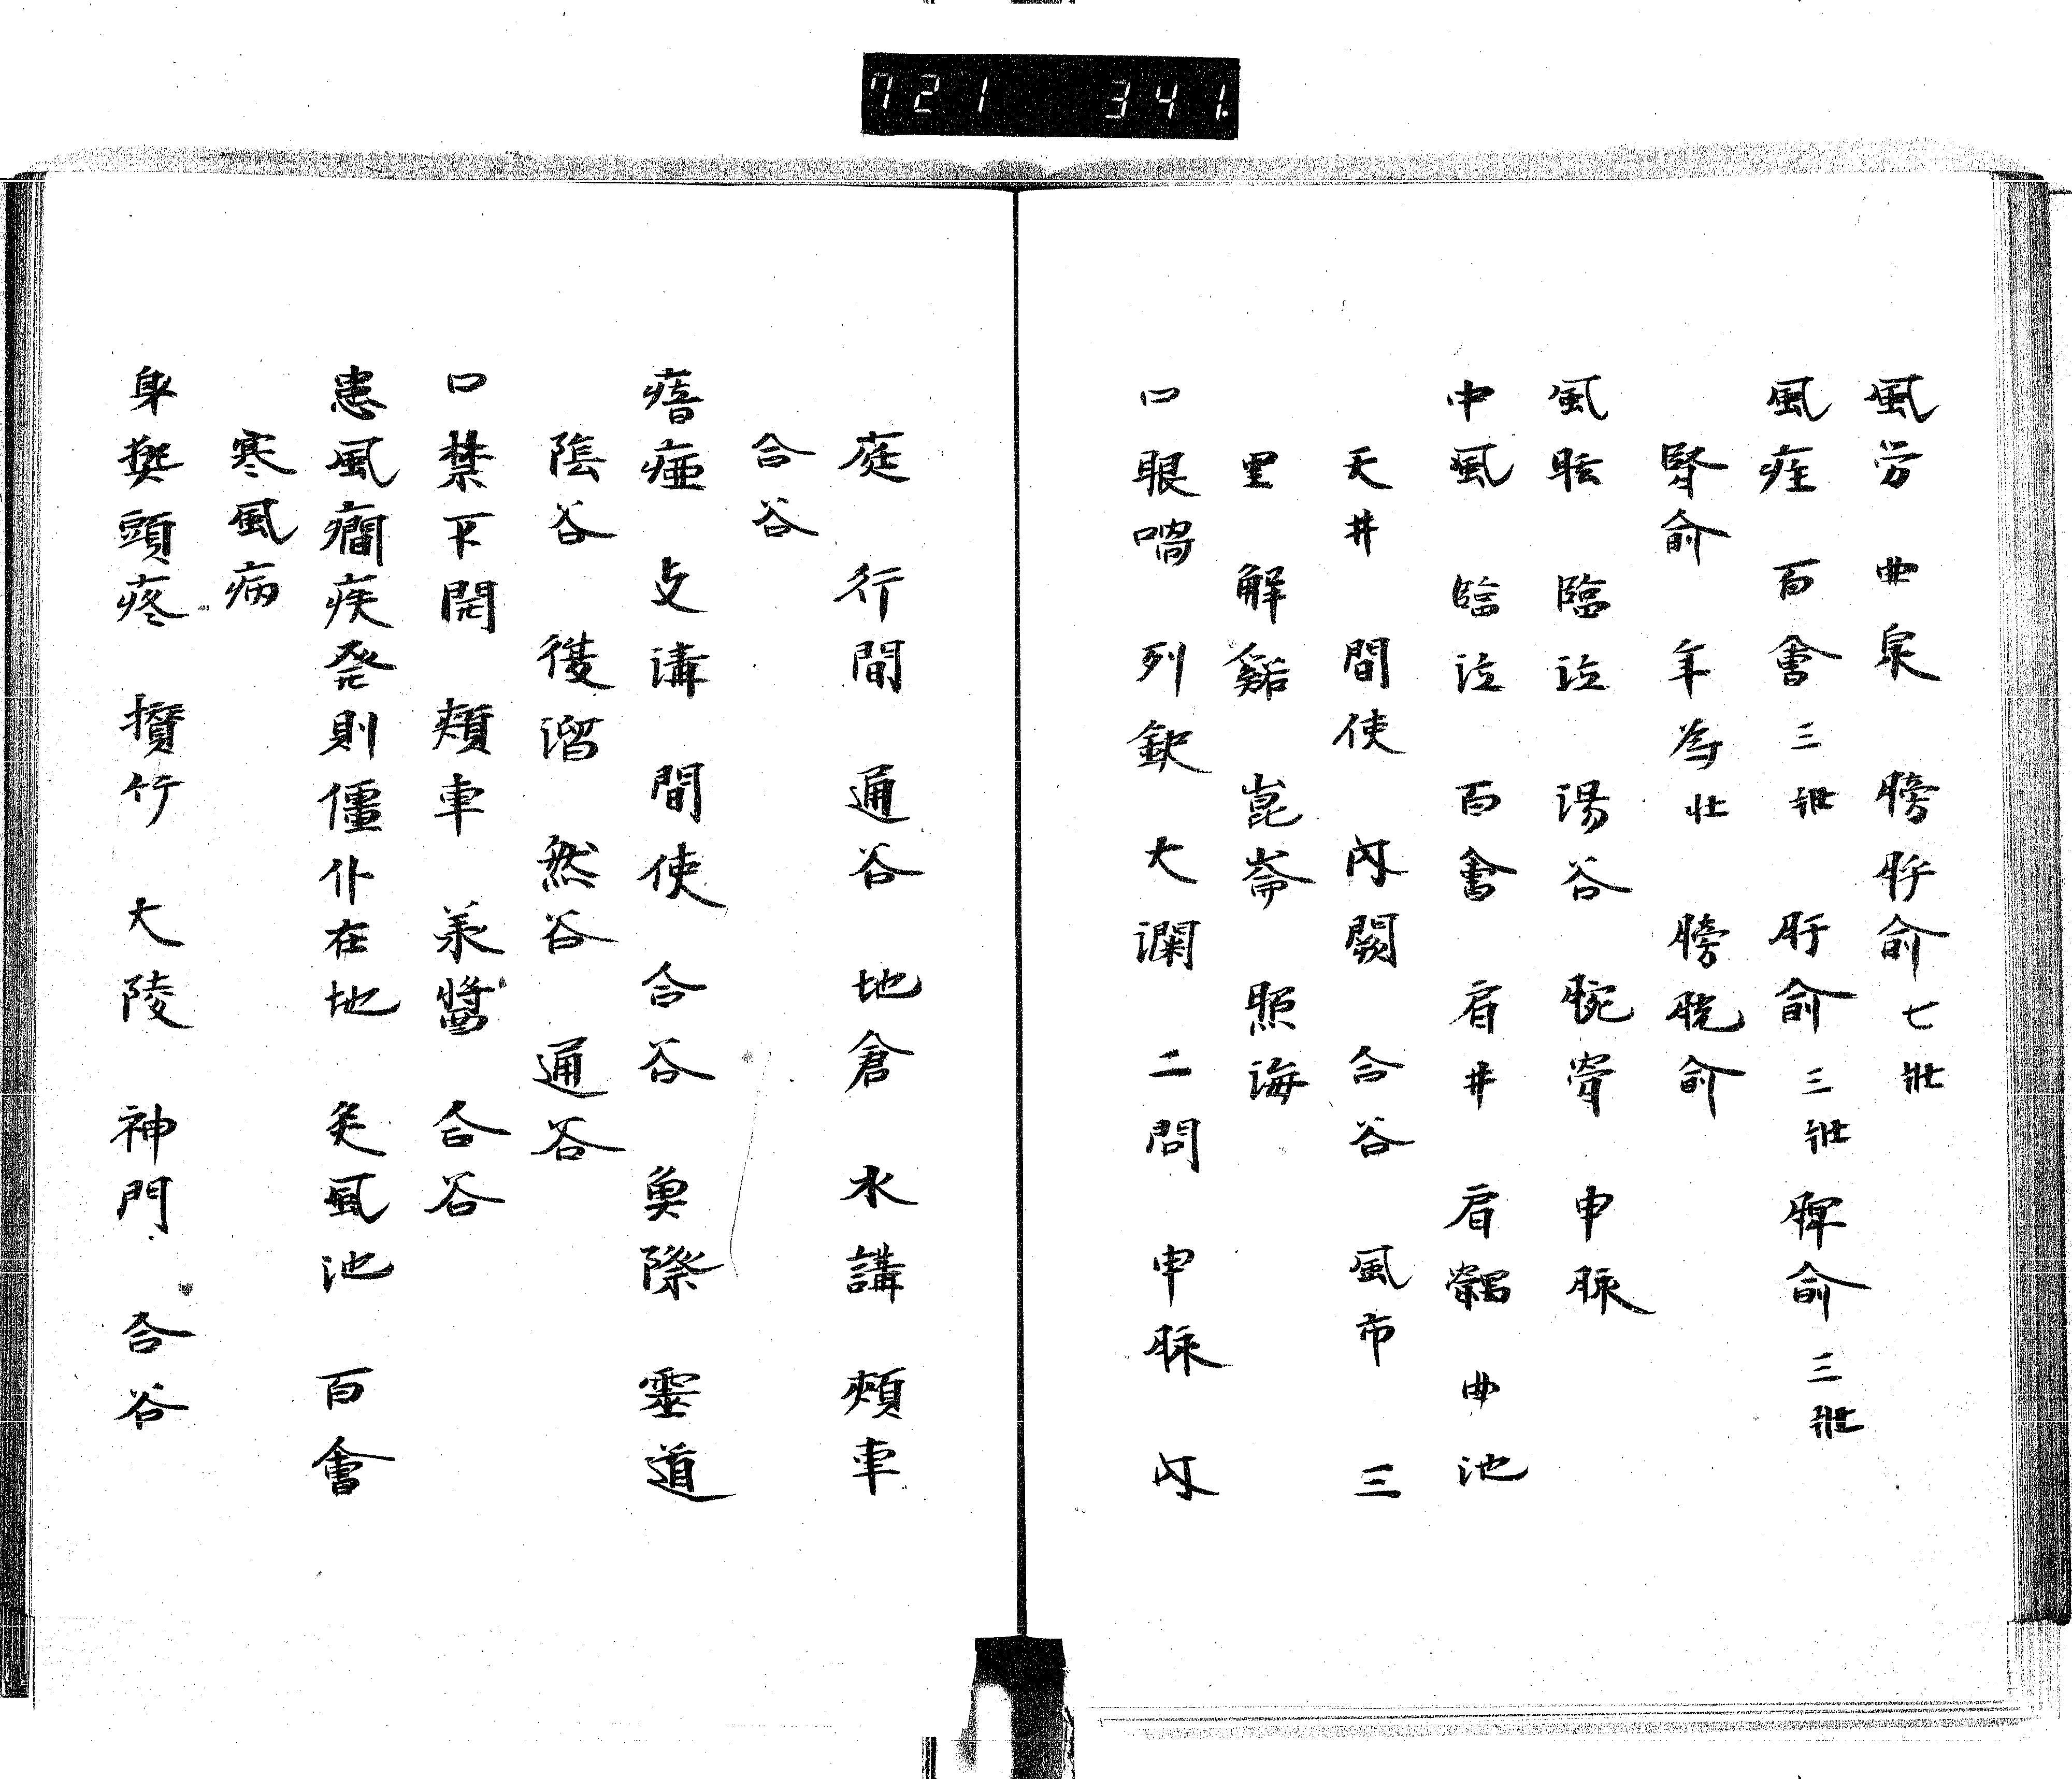 721 341.
風労 曲泉 膀胱俞 七壯
風疰 百會 三壯 肝俞 三壯 脾俞 三壯
腎俞 年為壯 膀胱俞
風眩 臨泣 湯谷 腕骨 申脉
中風 臨泣 百會 肩井 肩髃 曲池
天井 間使 内關 合谷 風市 三
里 解谿 崑崙 照海
口眼喎 列缺 大淵 二間 申脉 内
庭 行間 通谷 地倉 水講 頰車
合谷
瘖瘂 支溝 間使 合谷 魚際 霊道
陰谷 復溜 然谷 通谷
口禁不開 頰車 承漿 合谷
患風癎疾発則僵仆在地 灸風池 百會
寒風病
身熱頭疼 攅竹 大陵 神門 合谷